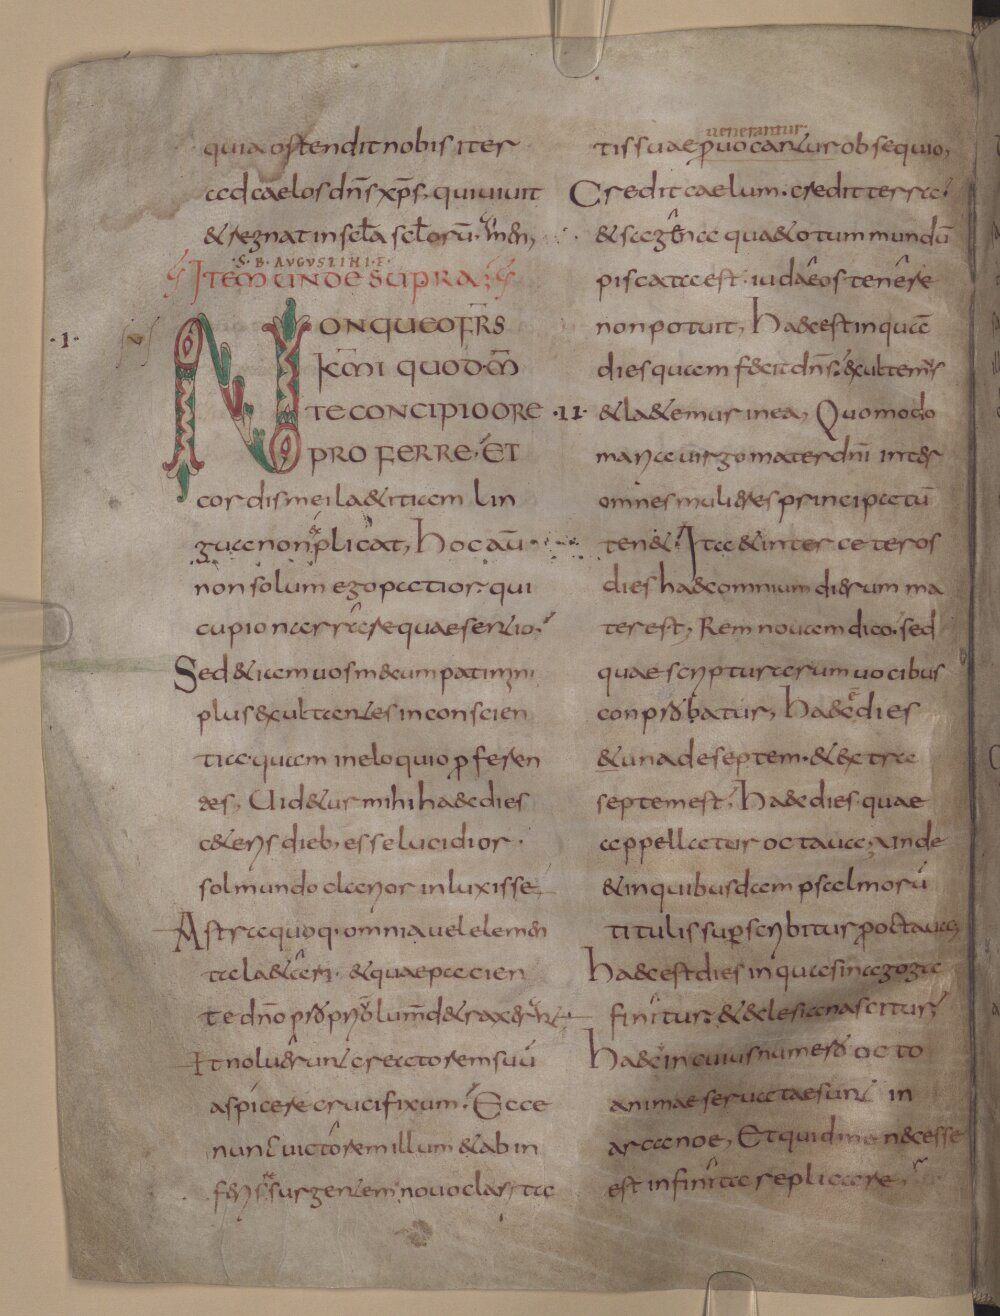 quia ostendit nobis iter
ad caelos dn̄s xp̄s. qui uiuit
& regnat in scl̄a scl̄orū. am̄en,
S. B. AUGUSTINI. F.
ITEM UNDE SUPRA
·I·
NON QUEO FR̄S
KM̄I QUOD M̄
TE CONCIPIO ORE
PROFERRE. ET
cordis mei laetitiam lin
gua non explicat, Hoc aū
non solum ego patior. qui
cupio narrare quae sentio.
Sed etiam uos mecum patimini
plus exultantes in conscien
tia. quam in eloquio p̱feren
tes, Uidetur mihi haec dies
ceteris dieb; esse lucidior.
sol mundo clarior inluxisse,
Astra quoq. omnia uel elemen
ta laetari. & quae pacien
te dn̄o proprium lum̄ detraxerunt
Et noluerunt creatorem suū
aspicere crucifixum. Ecce
nunc uictorem illum & ab in
feris resurgentem nouo claritae
uenerantur
tis suae p̱uocantur obsequio,
Credit caelum. credit terra.
& sagena quae totum mundū
piscata est. iudaeos tenere
non potuit, Haec est inquā
dies quam fecit dn̄s. exultemus
·II· & laetemur in ea, Quomodo
maria uirgo mater dn̄i inter
omnes mulieres principatū
tenet. Ita & inter ceteros
dies haec omnium dierum ma
ter est, Rem nouam dico. sed
quae scripturarum uocibus
conprobatur, Haec e dies
& una de septem. & extra
septem est, Haec dies quae
appellatur octaua, unde
& in quibusdam psalmorū
titulis sup̱scribitur p̱ octaua,
Haec est dies in qua sinagoga
finitur. & eclesia nascitur,
Haec in cuius numero octo
animae seruatae sunt in
arca noe, Et quid me necesse
est infinita replicare,